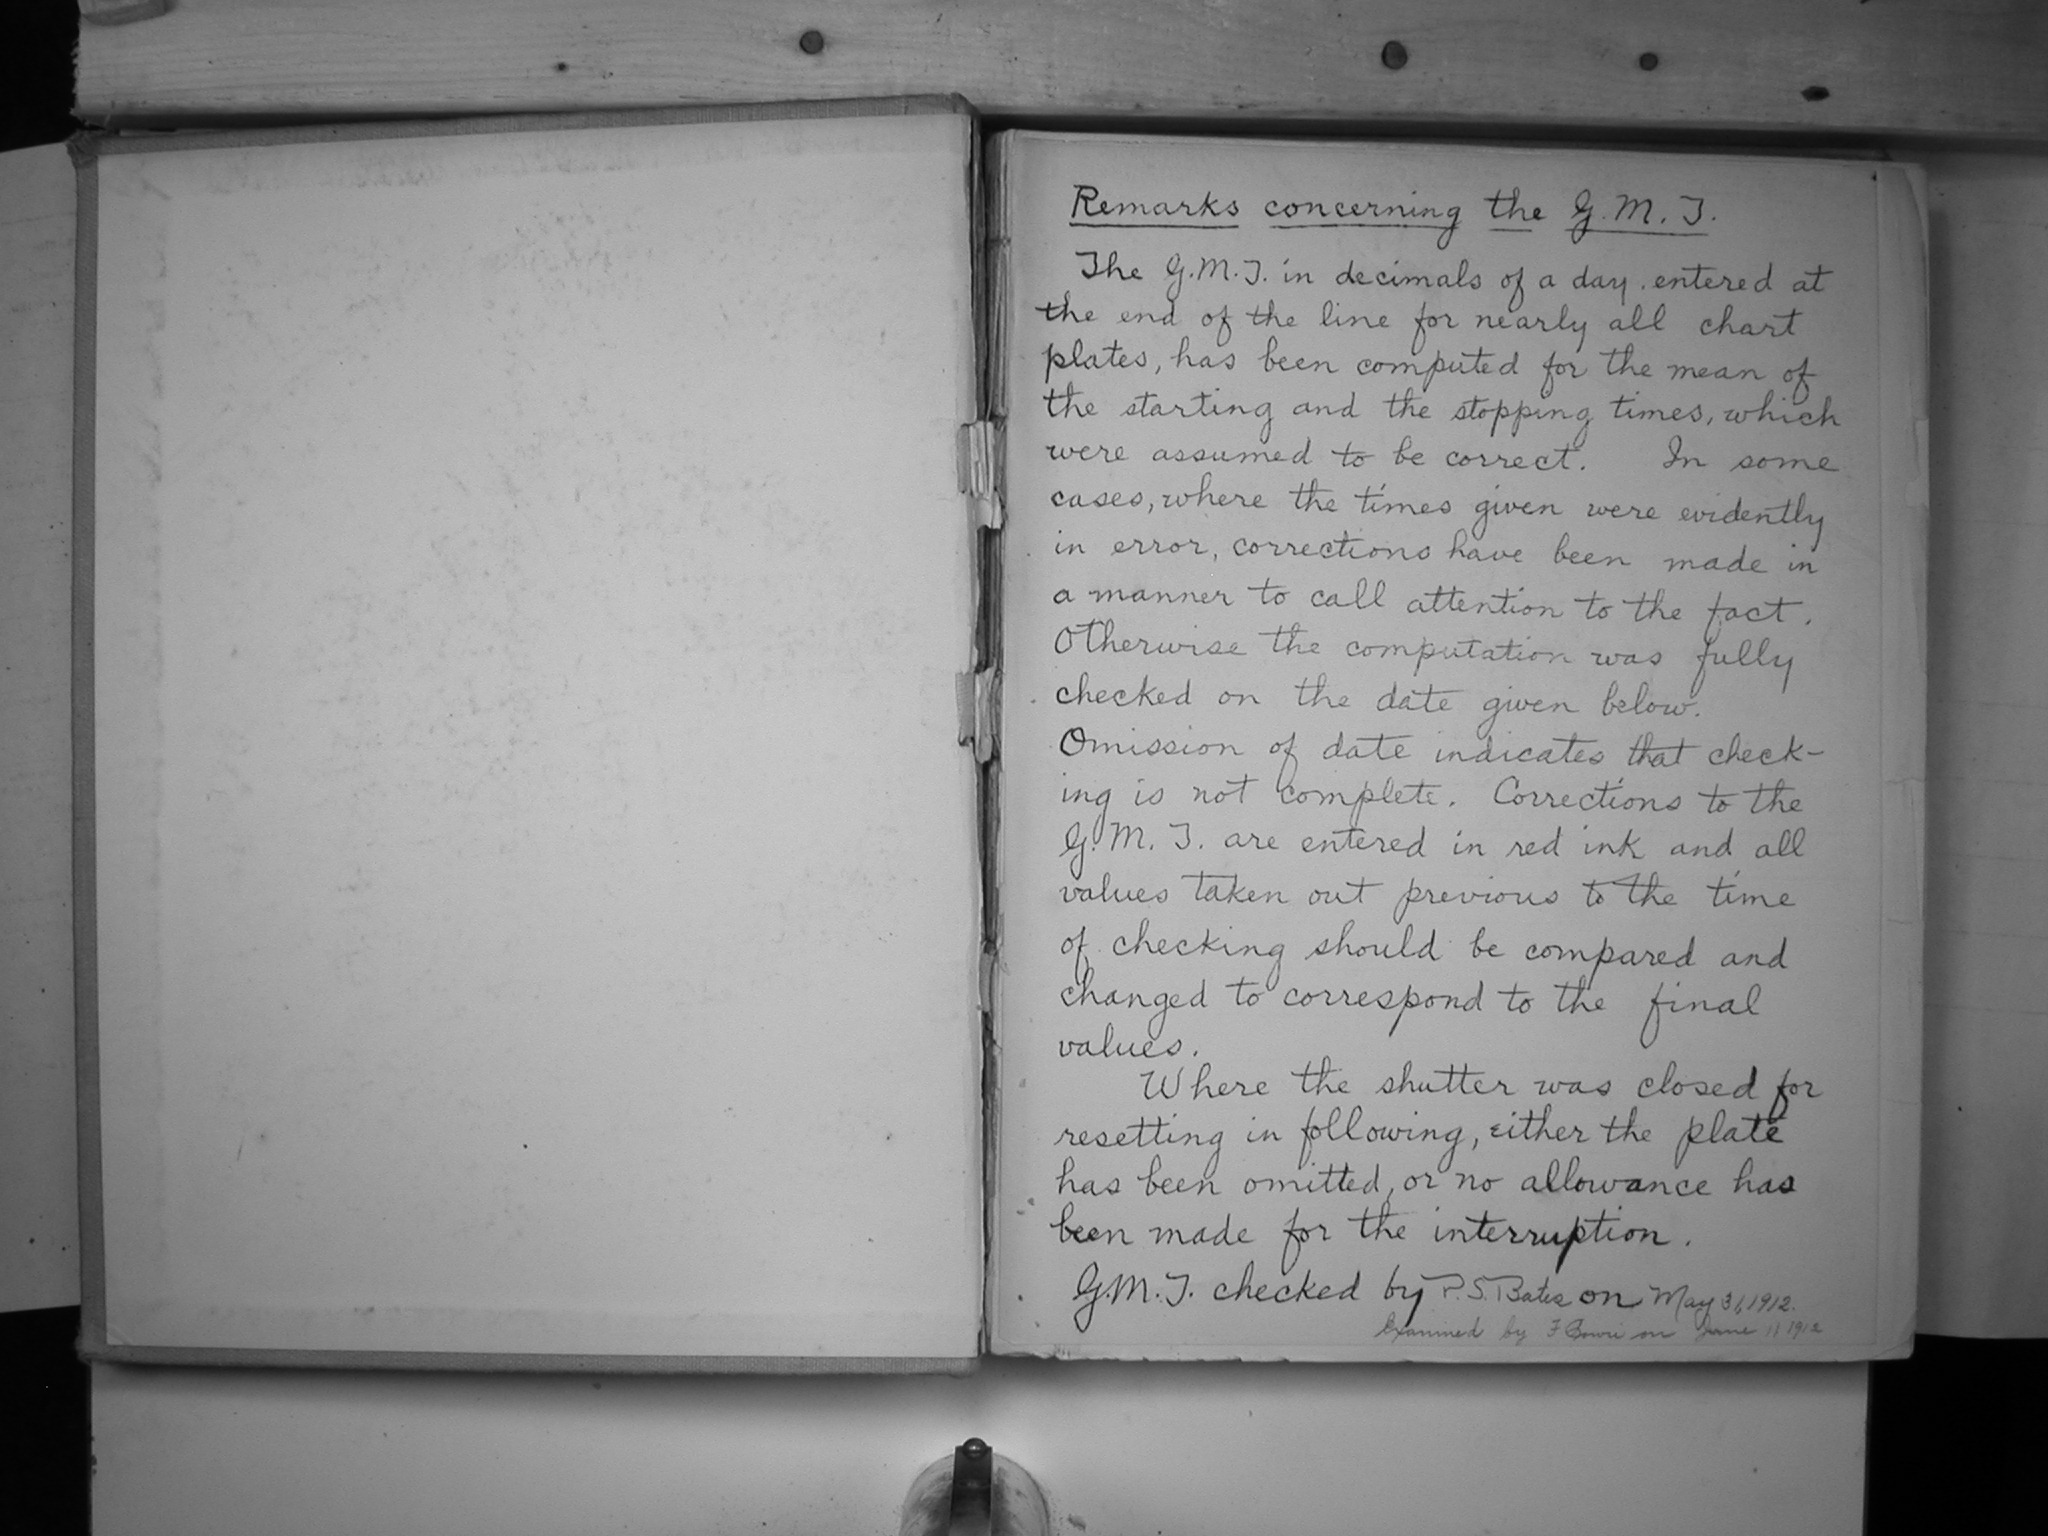 Remarks concerning the G.M.T.
The G.M.T. in decimals of a day, entered at
the end of the line for nearly all chart
plates, has been computed for the mean of
the starting and the stopping times, which
were assumed to be correct. In some
cases, where the times given were evidently
in error, corrections have been made in
a manner to call attention to the fact.
Otherwise the computation was fully
checked on the date given below.
Omission of date indicates that check-
ing is not complete. Corrections to the
G.M.T. are entered in red ink and all
values taken out previous to the time
of checking should be compared and
changed to correspond to the final
values.
Where the shutter was closed for
resetting in following, either the plate
has been omitted, or no allowance has
been made for the interruption.
G.M.T. checked by P.S. Bates on May 31, 1912.
Examined by F on June 11 1912